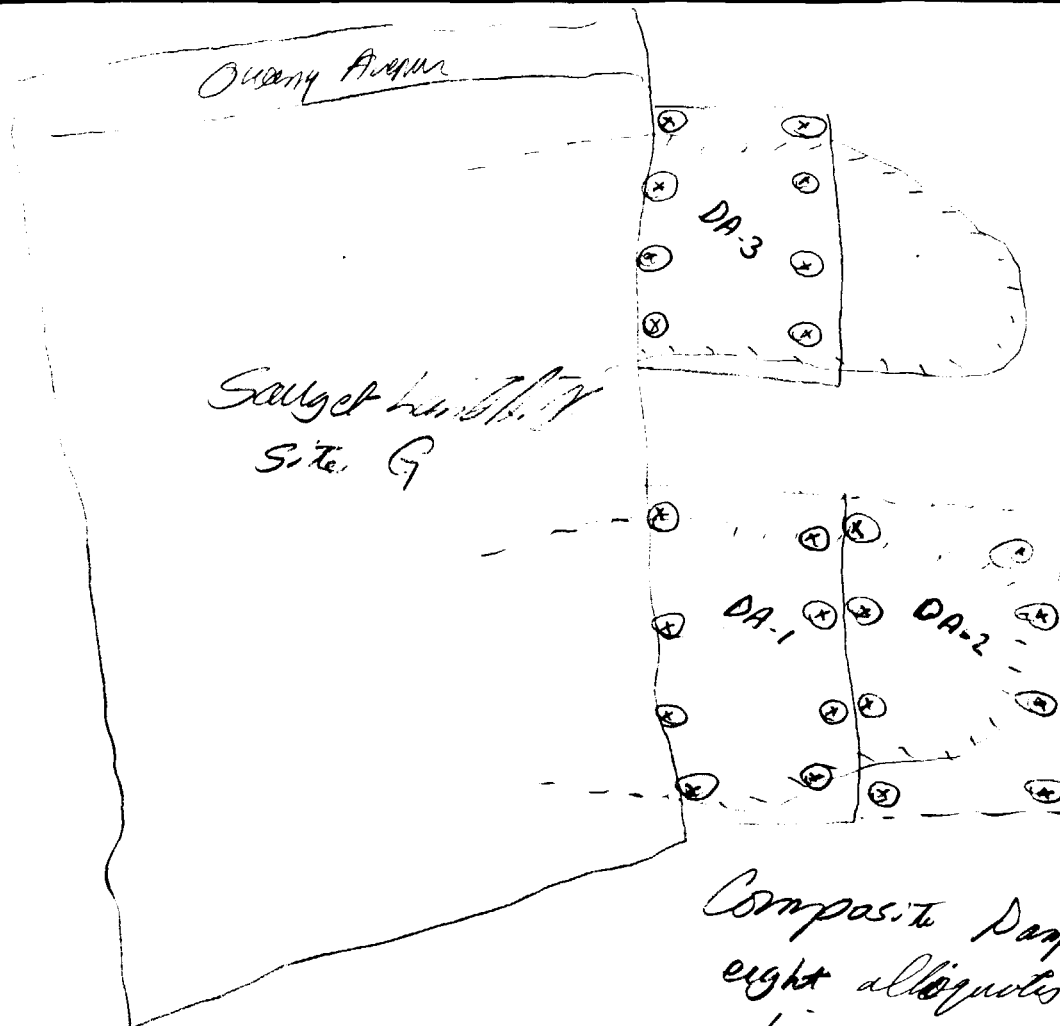 Queeny Avenue
DA-3
Sauget
Site G
DA-1
DA-2
Composite Sam
eight alloquotes